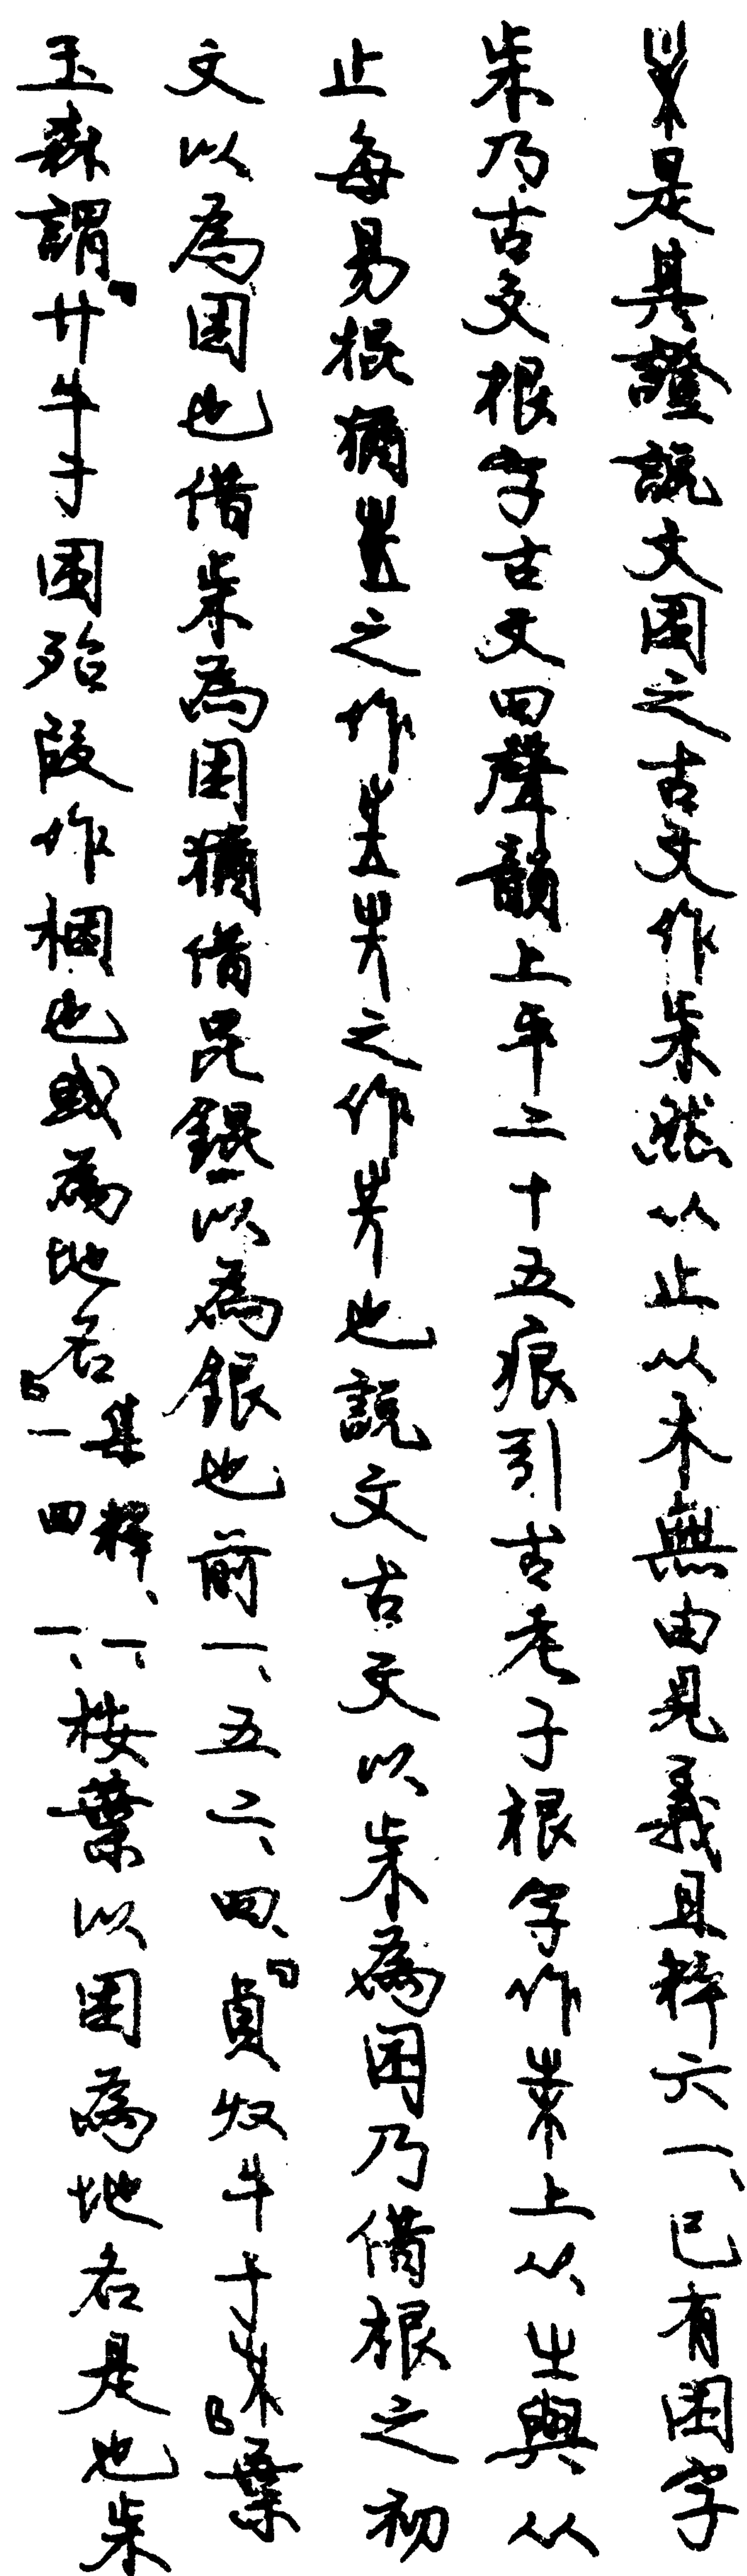 是其證說文困之古文作朱然从止从木無由見義且粹六一、已有困字
朱乃古文根字古文四聲韻上平二十五痕引古老子根字作上从生與从
止每易棍猶之作之作也說文古文以朱為困乃借根之初
文以為困也借朱為困猶借昆錕以為銀也前一、五二、四、「貞奴牛于」葉
玉森謂「廾牛于困殆叚作梱也或為地名」集釋、一、一四一、按葉以困為地名是也朱